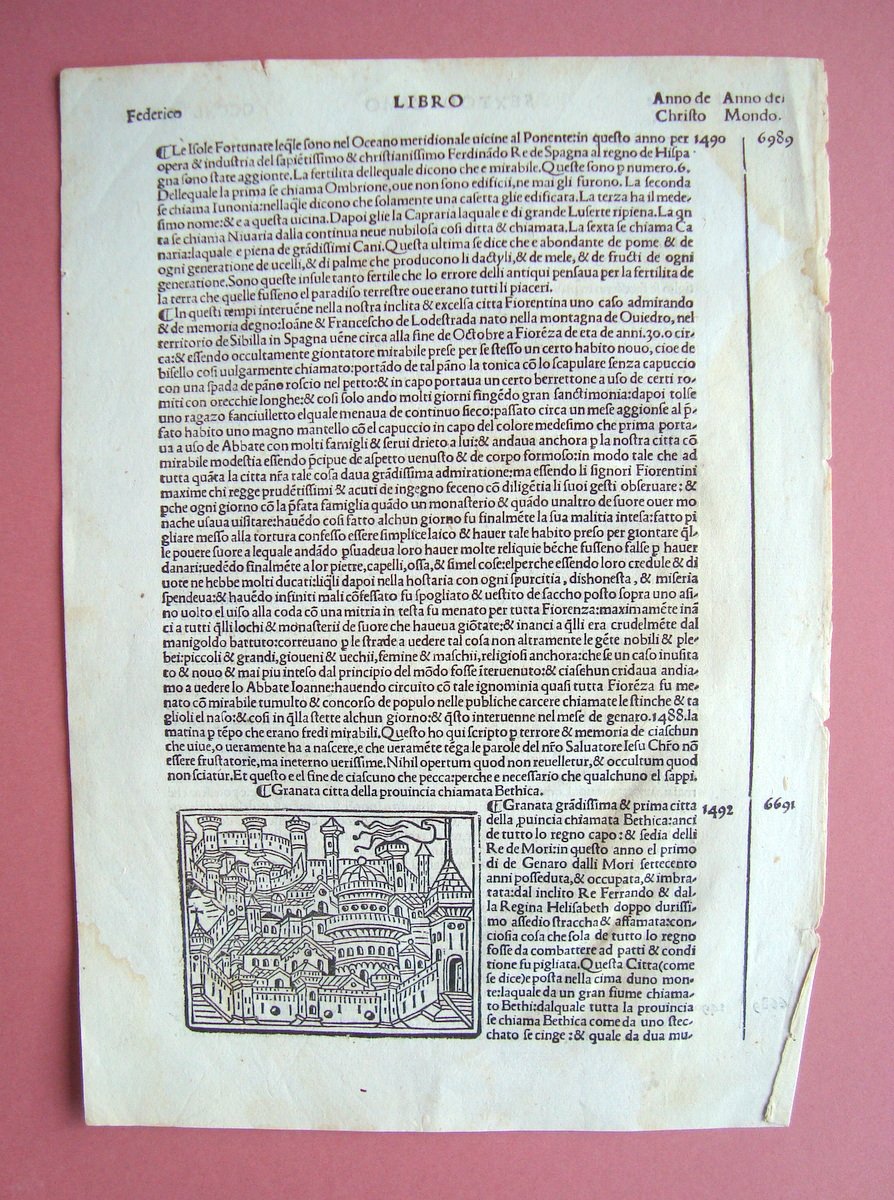 Federico
LIBRO
Anno de Anno del
Christo Mondo.
¶Le Isole Fortunate leq̃le sono nel Oceano meridionale uicine al Ponente:in questo anno per 1490 6989
opera & industria del sapiẽtissimo & christianissimo Ferdinãdo Re de Spagna al regno de Hispa
gna sono state aggionte.La fertilita dellequale dicono che e mirabile.Queste sono p numero.6.
Dellequale la prima se chiama Ombrione,oue non sono edificii,ne mai gli furono. La seconda
se chiama Iunonia:nellaq̃le dicono che solamente una casetta glie edificata.La terza ha il mede-
simo nome:& e a questa uicina.Dapoi glie la Capraria laquale e di grande Luserte ripiena.La qn
ta se chiama Niuaria dalla continua neue nubilosa cosi ditta & chiamata.La sexta se chiama Ca
naria:laquale e piena de grãdissimi Cani.Questa ultima se dice che e abondante de pome & de
ogni generatione de ucelli,& di palme che producono li dactyli,& de mele, & de fructi de ogni
generatione.Sono queste insule tanto fertile che lo errore delli antiqui pensaua per la fertilita de
la terra che quelle fusseno el paradiso terrestre oue erano tutti li piaceri.
¶In questi tempi interuẽne nella nostra inclita & excelsa citta Fiorentina uno caso admirando
& de memoria degno:Ioãne & Francescho de Lodestrada nato nella montagna de Ouiedro, nel
territorio de Sibilla in Spagna uẽne circa alla fine de Octobre a Fiorẽza de eta de anni.30.o cir-
ca:& essendo occultamente giontatore mirabile prese per se stesso un certo habito nouo, cioe de
bisello cosi uulgarmente chiamato:portãdo de tal pãno la tonica cõ lo scapulare senza capuccio
con una spada de pãno roscio nel petto:& in capo portaua un certo berrettone a uso de certi ro-
miti con orecchie longhe:& cosi solo ando molti giorni fingẽdo gran sanctimonia:dapoi tolse
uno ragazo fanciulletto elquale menaua de continuo sieco:passato circa un mese aggionse al p̃-
fato habito uno magno mantello cõ el capuccio in capo del colore medesimo che prima porta-
ua a uso de Abbate con molti famigli & serui drieto a lui:& andaua anchora p la nostra citta cõ
mirabile modestia essendo p̃cipue de aspetto uenusto & de corpo formoso:in modo tale che ad
tutta quãta la citta nr̃a tale cosa daua grãdissima admiratione:ma essendo li signori Fiorentini
maxime chi regge prudẽtissimi & acuti de ingegno feceno cõ diligẽtia li suoi gesti obseruare: &
pche ogni giorno cõ la p̃fata famiglia quãdo un monasterio & quãdo unaltro de suore ouer mo
nache usaua uisitare:hauẽdo cosi fatto alchun giorno fu finalmẽte la sua malitia intesa:fatto pi
gliare messo alla tortura confesso essere simplice laico & hauer tale habito preso per giontare q̃l-
le pouere suore a lequale andãdo psuadeua loro hauer molte reliquie bẽche fusseno false p hauer
danari:uedẽdo finalmẽte a lor pietre,capelli,ossa,& simel cose:elperche essendo loro credule & di
uote ne hebbe molti ducati:liq̃li dapoi nella hostaria con ogni spurcitia, dishonesta, & miseria
spendeua:& hauẽdo infiniti mali cõfessato fu spogliato & uestito de saccho posto sopra uno asi-
no uolto el uiso alla coda cõ una mitria in testa fu menato per tutta Fiorenza:maximamẽte inã
ci a tutti q̃lli lochi & monasterii de suore che haueua giõtate:& inanci a q̃lli era crudelmẽte dal
manigoldo battuto:correuano p le strade a uedere tal cosa non altramente le gẽte nobili & ple-
bei:piccoli & grandi,gioueni & uechii,femine & maschii,religiosi anchora:che se un caso inusita
to & nouo & mai piu inteso dal principio del mõdo fosse ĩteruenuto:& ciaschun cridaua andia-
mo a uedere lo Abbate Ioanne:hauendo circuito cõ tale ignominia quasi tutta Fiorẽza fu me-
nato cõ mirabile tumulto & concorso de populo nelle publiche carcere chiamate le stinche & ta
glioli el naso:& cosi in q̃lla stette alchun giorno:& q̃sto interuenne nel mese de genaro.1488.la
matina p tẽpo che erano fredi mirabili.Questo ho qui scripto p terrore & memoria de ciaschun
che uiue,o ueramente ha a nascere,e che ueramẽte tẽga le parole del nr̃o Saluatore Iesu Chr̃o nõ
essere frustatorie,ma ineterno uerissime.Nihil opertum quod non reuelletur,& occultum quod
non sciatur.Et questo e el fine de ciascuno che pecca:perche e necessario che qualchuno el sappi.
¶Granata citta della prouincia chiamata Bethica.
¶Granata grãdissima & prima citta 1492 6691
della ,puincia chiamata Bethica:anci
de tutto lo regno capo:& sedia delli
Re de Mori:in questo anno el primo
di de Genaro dalli Mori settecento
anni posseduta,& occupata,& imbra-
tata:dal inclito Re Ferrando & dal-
la Regina Helisabeth doppo durissi-
mo assedio straccha & affamata:con-
ciosia cosa che sola de tutto lo regno
fosse da combattere ad patti & condi
tione fu pigliata.Questa Citta(come
se dice)e posta nella cima duno mon-
te:laquale da un gran fiume chiama-
to Bethi:dalquale tutta la prouincia
se chiama Bethica come da uno stec-
chato se cinge :& quale da dua mu-